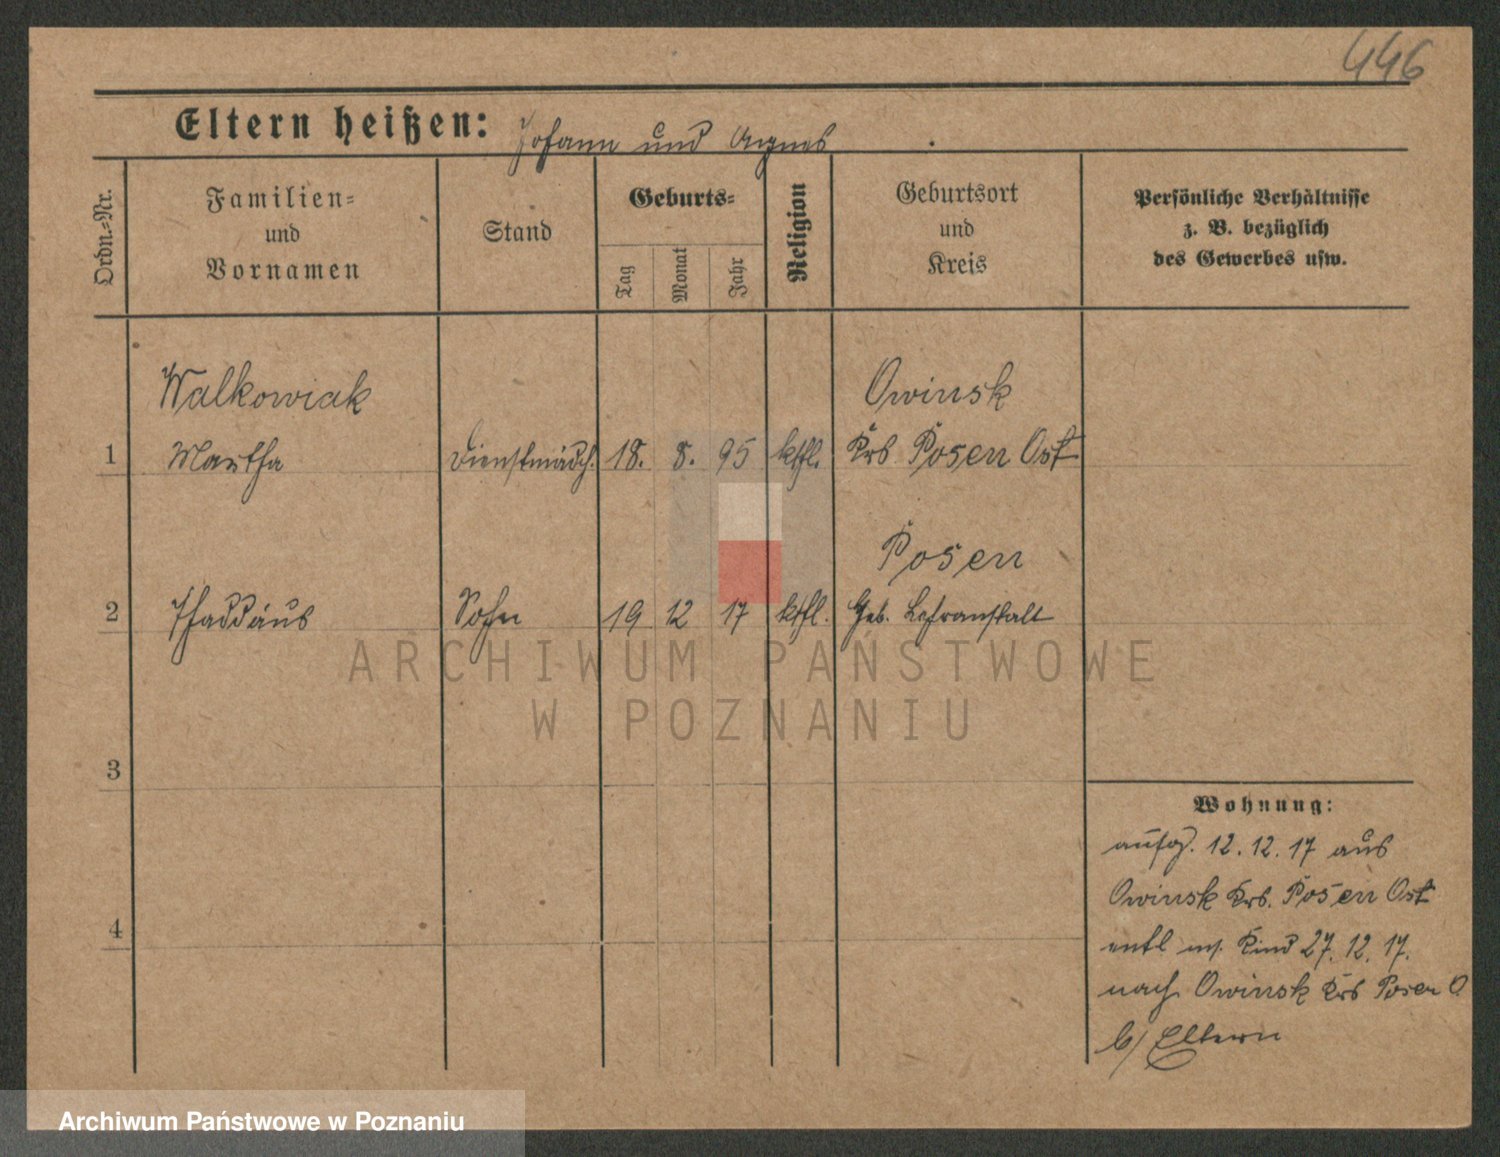 446
Eltern heißen: Johann und Agnes
Ordn.-Nr.
Familien-
und
Vornamen
Stand
Geburts-
Tag
Monat
Jahr
Religion
Geburtsort
und
Kreis
Persönliche Verhältnisse
z. B. bezüglich
des Gewerbes usw.
Walkowiak Owinsk
1 Martha Dienstmädch. 18. 8. 95 kthl. Krs Posen Ost
Posen
2 Thaddäus Sohn 19 12 17 kthl. Geb. Lehranstalt
3
4
Wohnung:
aufg. 12. 12. 17 aus
Owinsk Krs. Posen Ost
entl m. Kind 27. 12. 17.
nach Owinsk Krs Posen O.
b/ Eltern
ARCHIWUM PAŃSTWOWE
W POZNANIU
Archiwum Państwowe w Poznaniu